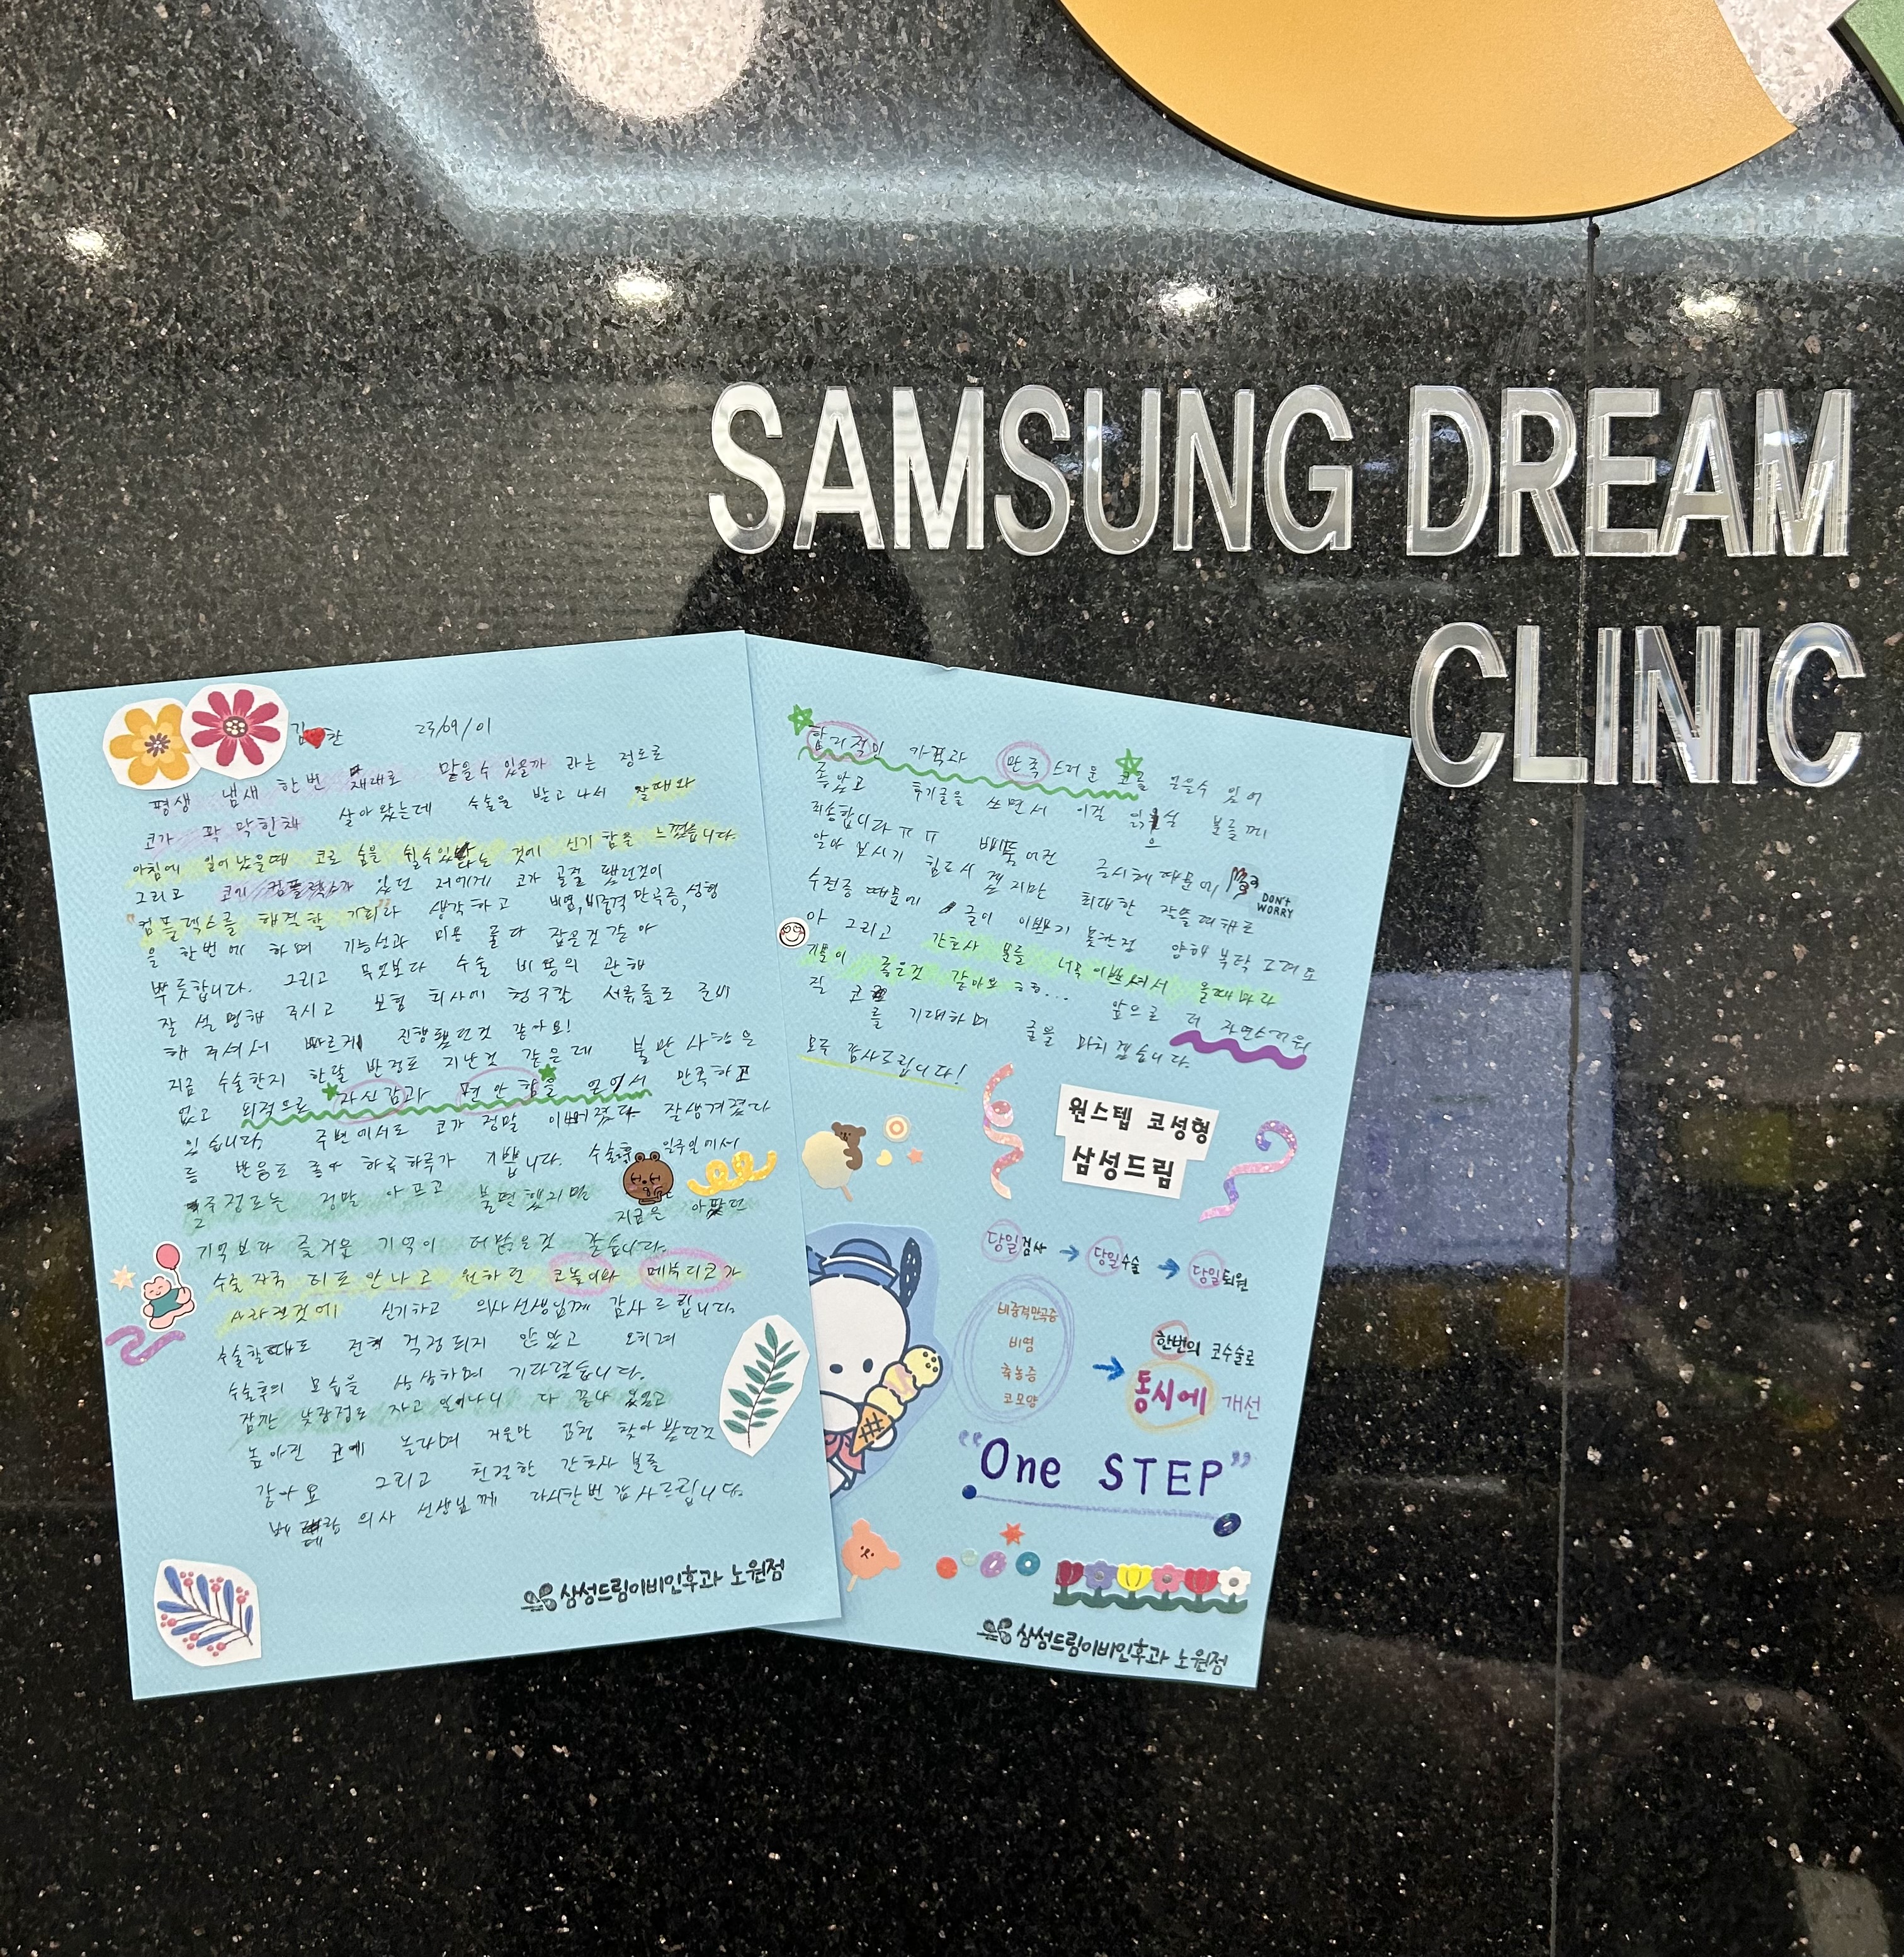 SAMSUNG DREAM
CLINIC
김 찬 23/09/01
평생 냄새 한번 제대로 맡을수 있을까 라는 정도로
코가 꽉 막힌채 살아왔는데 수술을 받고 나서 잘때와
아침에 일어났을때 코로 숨을 쉴수있다는 것에 신기함을 느꼈습니다.
그리고 코가 컴플렉스가 있던 저에게 코가 골절 됐던것이
"컴플렉스를 해결할 기회"라 생각하고 비염, 비중격만곡증, 성형
을 한번에 하며 기능성과 미용 둘다 잡은것 같아
뿌듯합니다. 그리고 무엇보다 수술 비용의 관해
잘 설명해 주시고 보험 회사에 청구할 서류들로 준비
해 주셔서 빠르게 진행됐던것 같아요!
지금 수술한지 한달 반정도 지난것 같은데 불만 사항은
없고 외적으로 자신감과 편안함을 얻어서 만족하고
있습니다 주변에서도 코가 정말 이뻐졌다 잘생겨졌다
등 반응도 좋아 하루하루가 기쁩니다. 수술후 일주일에서
2주정도는 정말 아프고 불편했지만
지금은 아팠던
기억보다 즐거운 기억이 더많은것 같습니다.
수술 자국 티도 안나고 원하던 코높이와 매부리코가
사라진것에 신기하고 의사선생님께 감사드립니다.
수술할때도 전혀 걱정되지 않았고 오히려
수술후의 모습을 상상하며 기다렸습니다.
잠깐 낮잠정도 자고 일어나니 다 끝나 있었고
높아진 코에 놀라며 거울만 엄청 찾아봤던것
같아요 그리고 친절한 간호사 분들
의사 선생님께 다시한번 감사드립니다.
삼성드림이비인후과 노원점
합리적인 가격과 만족스러운 코를 얻을수 있어
좋았고 후기글을 쓰면서 이걸 읽으실 분들께
죄송합니다ㅠㅠ 삐뚤어진 글시체 때문에
알아 보시기 힘드시겠지만 최대한 잘쓸려해도
DON'T
WORRY
수전증 때문에 글이 이쁘지 못한점 양해 부탁드려요
아 그리고 간호사 분들 너무 이쁘셔서 올때마다
기분이 좋은것 같아요 ㅎㅎ... 앞으로 더 자연스러워
질 코를 기대하며 글을 마치겠습니다.
모두 감사드립니다!
원스텝 코성형
삼성드림
당일검사 → 당일수술 → 당일퇴원
비중격만곡증
비염
축농증
코모양
→ 한번의 코수술로
동시에 개선
"One STEP"
삼성드림이비인후과 노원점